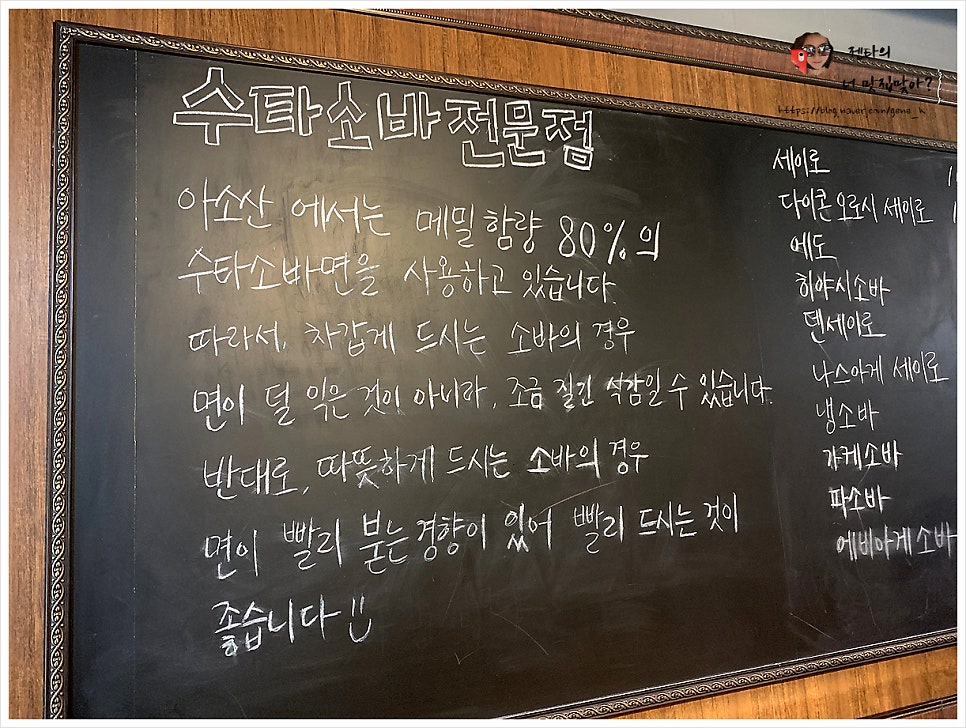 수타소바전문점
아소산 에서는 메밀함량 80%의
수타소바면을 사용하고 있습니다.
따라서, 차갑게 드시는 소바의 경우
면이 덜 익은 것이 아니라, 조금 질긴 식감일 수 있습니다.
반대로, 따뜻하게 드시는 소바의 경우
면이 빨리 붇는 경향이 있어 빨리 드시는 것이
좋습니다
세이로
다이콘 오로시 세이로
에도
히야시소바
덴세이로
나스아게 세이로
냉소바
가케소바
파소바
에비아게소바
젠타의
너 맛집맞아?
https://blog.naver.com/gene_k